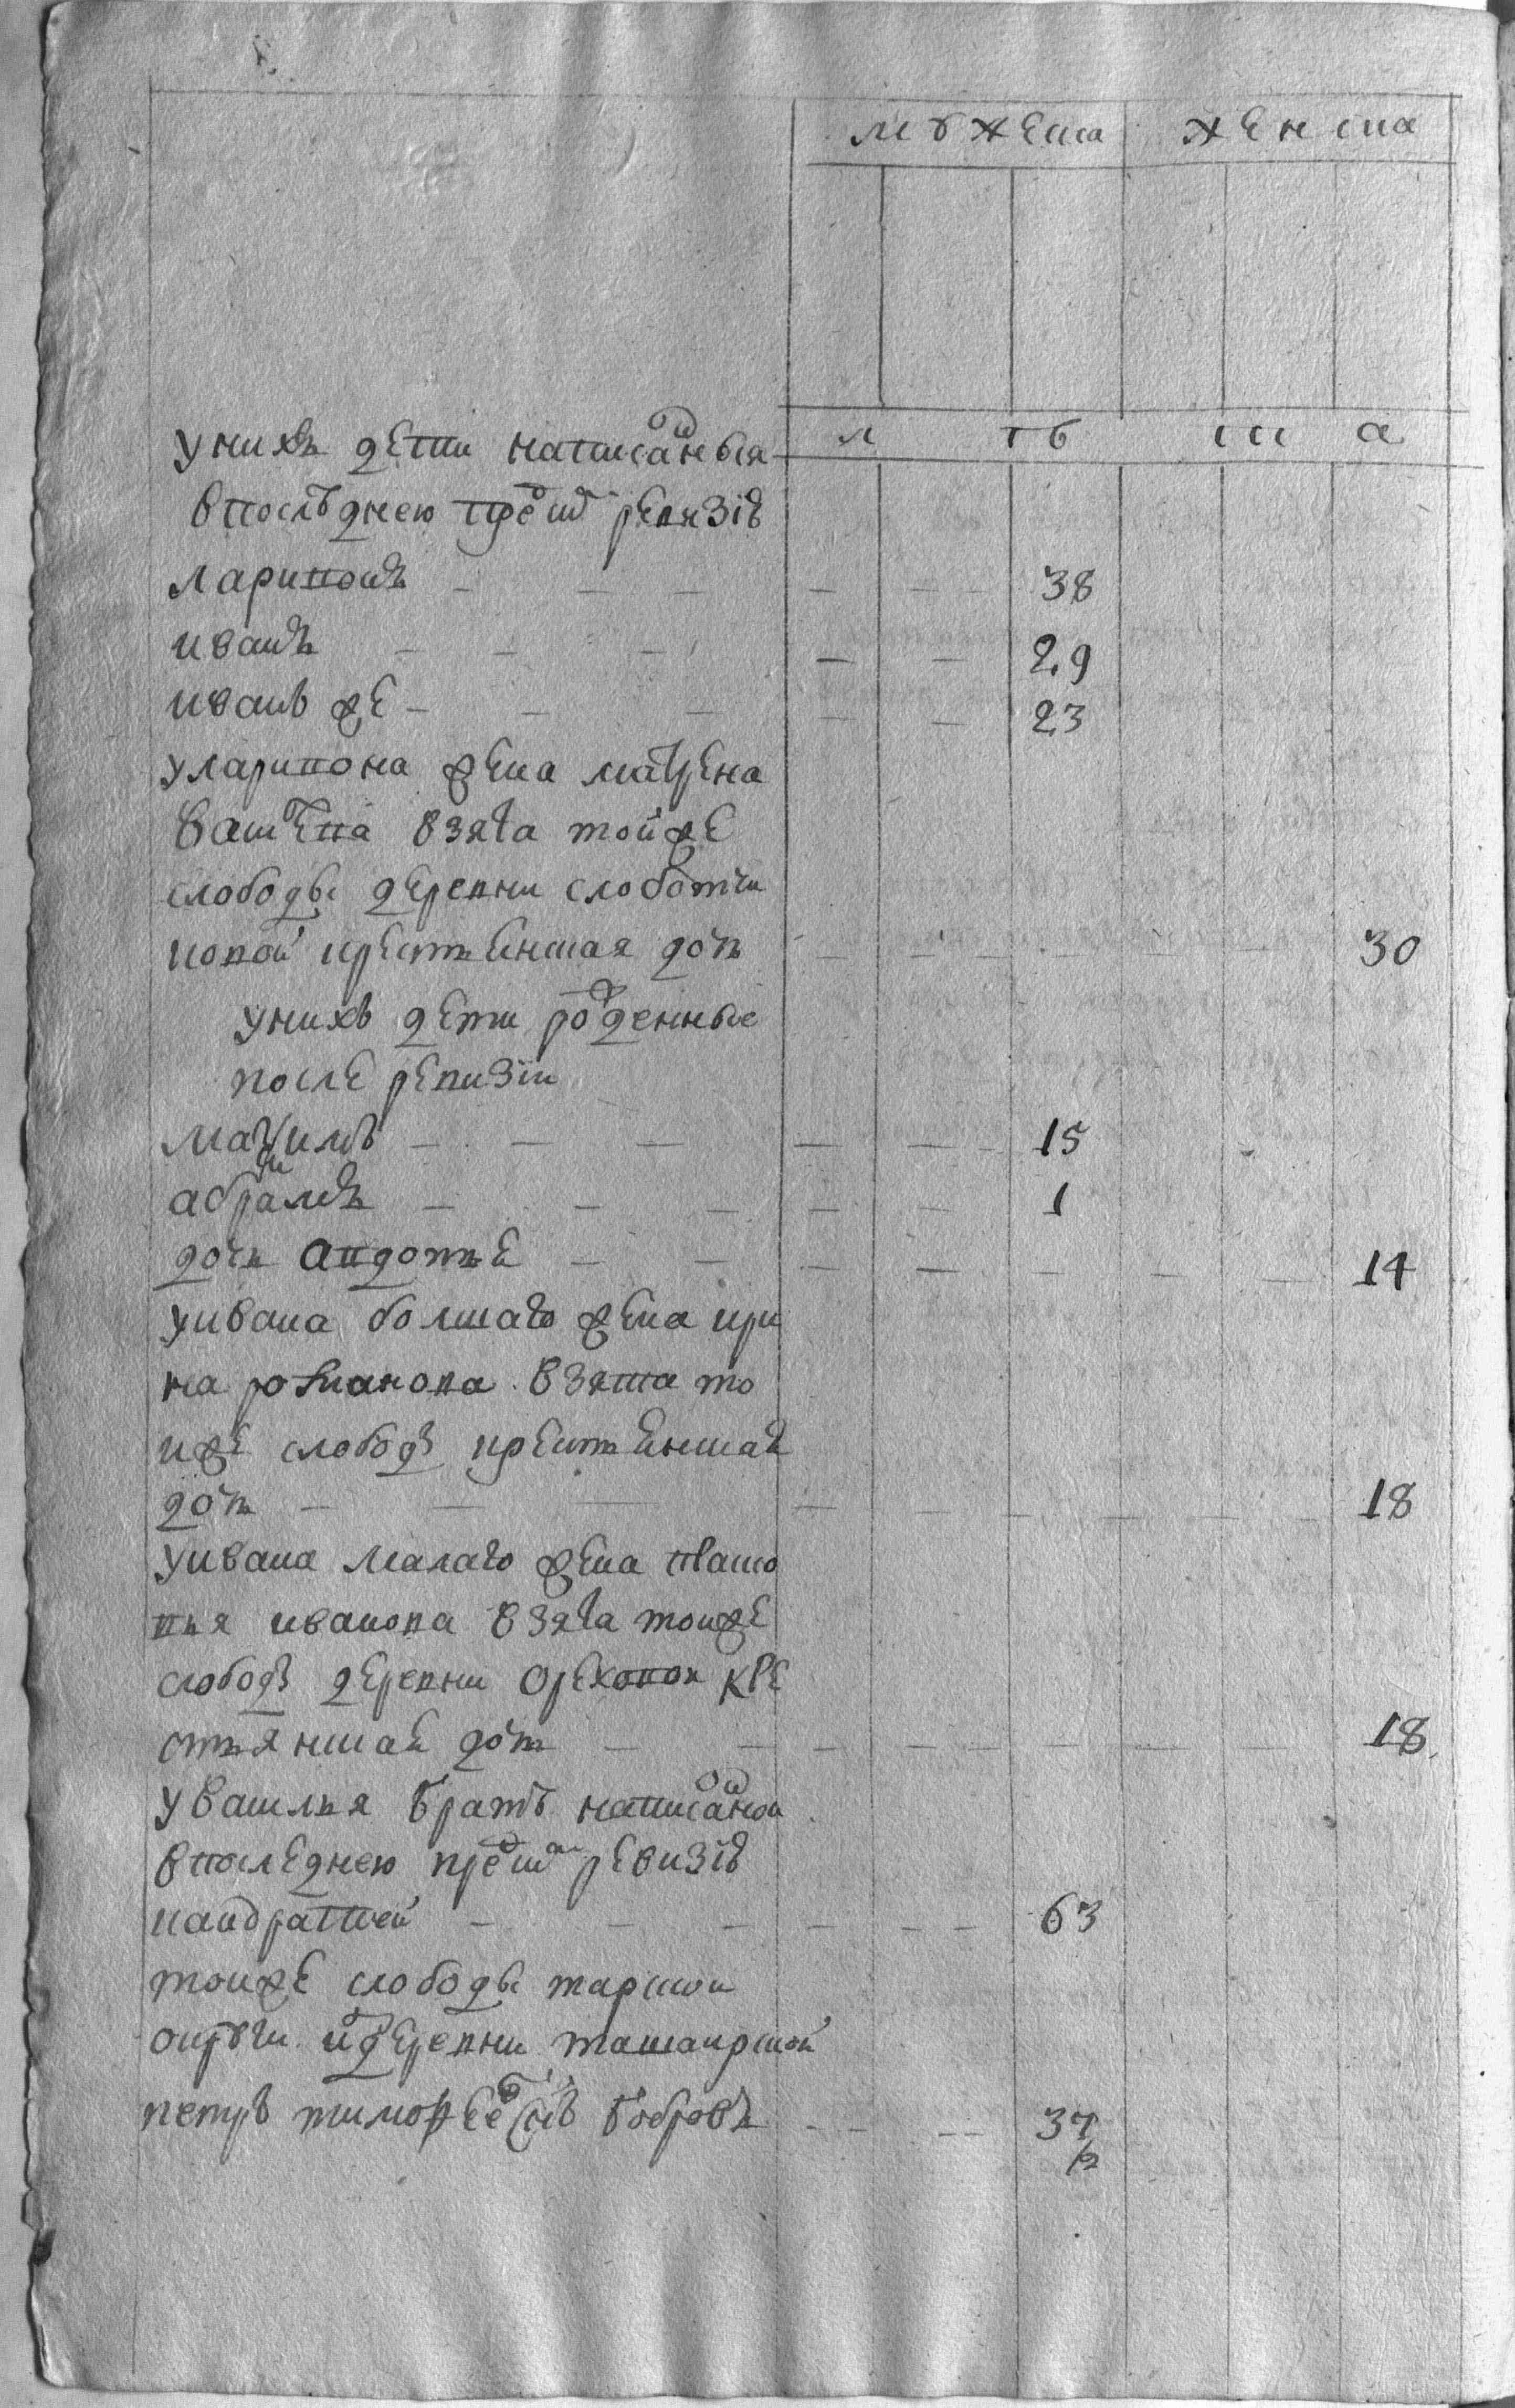 мужеска женска
л т ъ с к а
у нихъ дети написанныя
в последнею пред сею ревизiю
ларивонъ 38
иванъ 29
иванъ же 23
у ларивона жена матрена
взята той же
слободы деревни слободчи
ковой крестьенская дочь 30
у нихъ дети рожденные
после ревизiи
максимъ 15
абрамъ 1
дочь авдотье 14
у ивана болшаго жена ири
на романова взята то
й же слободы крестьенская
дочь 18
у ивана малаго жена
иванова взята той же
слободы деревни ореховой кре
стьянская дочь 18
у василья братъ написанной
в последнею пред сею ревизiю
кандратей 63
той же слободы тарской
округи деревни
петръ тимофеевъ сынъ бобровъ 37